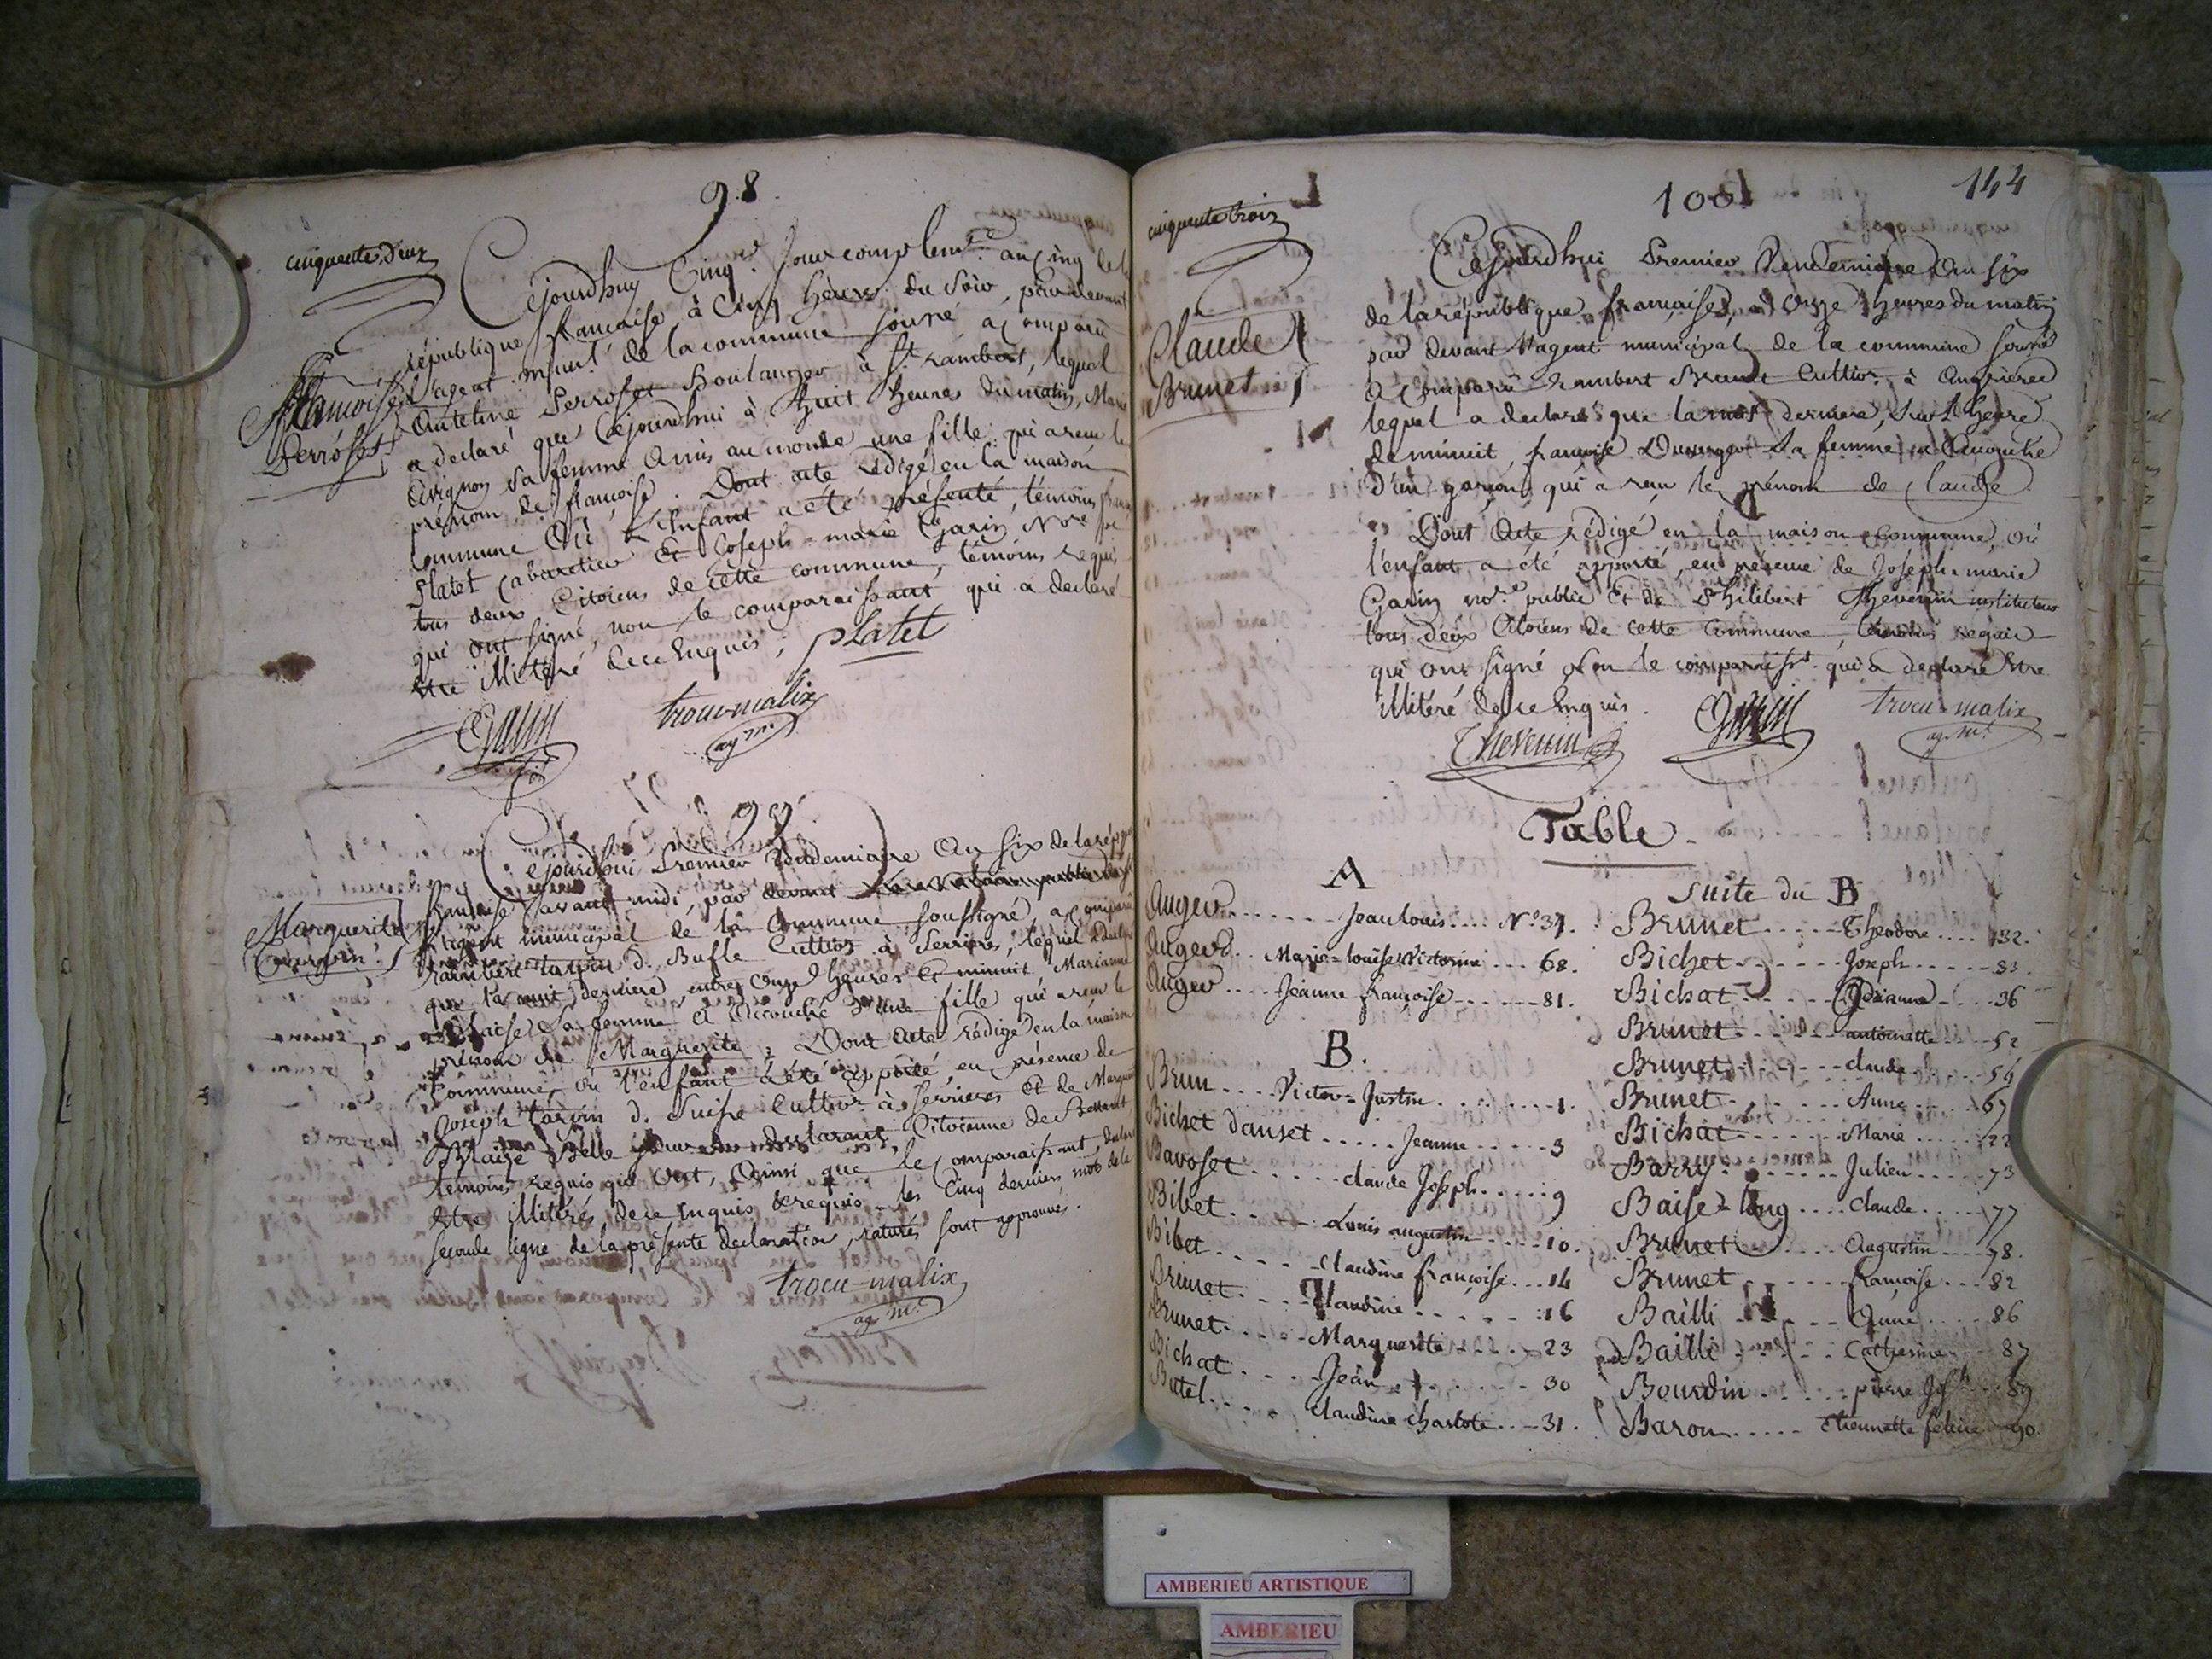 98
cinquante, deux
Cejourdhuy Cinq.e Jour complem.re an Cinq de la
république francaise, à Cinq heures du soir, par devant
l'agent mun.l de la commune sousné, a comparu
françoise
Perroset
Antelme Perroset Boulanger à St. rambert, lequel
a declaré que Cejourdhui à huit heures du matin, Marie
Avignon sa femme a mis au monde une fille qui a recu le
prénom de françoise. Dont acte rédigé en la maison
Commune où L'Enfant a été présenté, témoins
Platet Cabaretier Et Joseph-marie Garin No.re
tous deux Citoiens de cette commune, témoins requis
qui ont signé, non le comparaissant qui a declaré
être illitéré de ce Enquis; platet
Garin trocu-malix
ag m.
99
Cejourdhui Premier Vendemiaire An Six de la rép
francaise avant midi, par devant
l'agent municipal de la Commune soussigné, a comparu
Marguerite
Tarpin
tarpin d. Bufle Cultiv.r à Serrières, lequel
que la nuit derniere entre onze heures Et minuit, Marianne
Blaise sa femme a accouché d'une fille qui a recu le
prénom de Marguerite; Dont acte rédigé en la maison
Commune, où l'enfant a été apporté, en présence de
Joseph tarpin d. Suisse Cultiv.r à Serrieres et de
Blaise Belle Citoienne de
témoins requis qui ont, Ainsi que le comparaissant,
être illitérés, de ce Enquis & requis - les Cinq derniers mots de la
seconde ligne de la présente declaration, raturés sont approuvés.
trocu-malix
ag m.
144
100
cinquante trois
Cejourdhui Premier Vendemiaire An Six
de la république francaise, à onze heures du matin
par devant l'agent municipal de la commune sousné
Claude
Brunet
a Comparu Rambert Brunet Cultiv.r à Angrieres
lequel a declaré que la nuit derniere, sur l'heure
de minuit, françoise sa femme a accouché
d'un garçon, qui a recu le prénom de Claude.
Dont Acte rédigé en la maison Commune, où
l'enfant a été apporté, en présence de Joséph-marie
Garin no.re public Et de Philibert Thévenin instituteur
tous deux Citoiens de cette Commune témoins requis
qui ont signé Non le comparaiss.t qui a declaré Etre
illitéré de ce Enquis.
Thevenin Garin trocu-malix
ag. m.
Table
A
Auger ...... Jean louis .... N.o 37.
Auger .. Marie-louise Victorine ... 68.
Auger .... Jeanne françoise ...... 81.
B.
Brun .... Victor-Justin ........ 1.
Bichet danset ..... Jeanne ..... 3
Bavoset ..... claude Joseph ..... 9
Bibet ..... Louis augustin ..... 10.
Bibet ..... Claudine françoise ... 14
Brunet .... Claudine ..... 16
Brunet .... Marguerite ..... 23
Bichat .... Jean ..... 30
Butel .... Claudine charlote ... 31.
Suite du B
Brunet ..... Theodore .... 32.
Bichet ..... Joseph ..... 33.
Bichat ..... .... 36
Brunet ..... antoinette ... 52
Brunet ..... claude .... 56
Brunet ..... Anne ..... 67
Bichat ..... Marie ..... 22
Barry ..... Julien ..... 73
Baise-long .... Claude ..... 77
Brunet .... Augustin .... 78.
Brunet ..... françoise ... 82
Bailli ..... Anne ..... 86
Bailli ..... Catherine ... 87
Bourdin ..... pierre Jos.h ... 89
Baron ..... Etiennette felicie ... 90.
AMBERIEU ARTISTIQUE
AMBERIEU